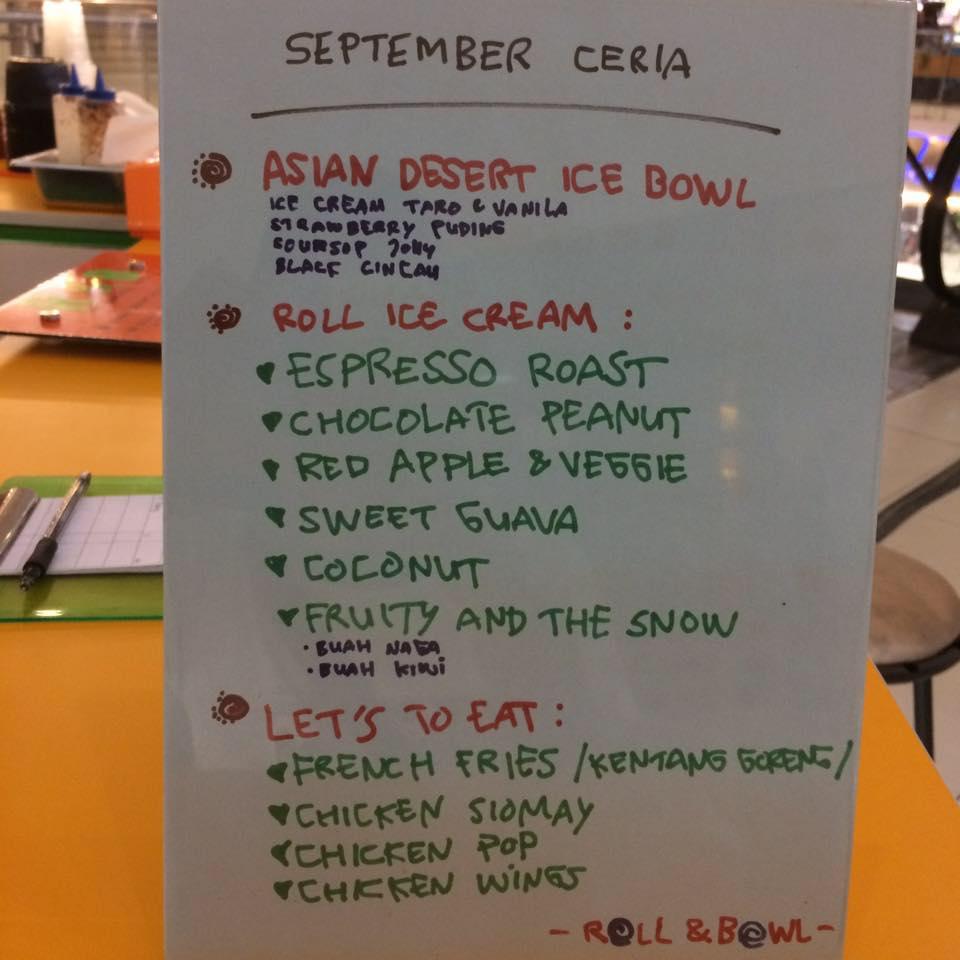 SEPTEMBER CERIA
ASIAN DESERT ICE BOWL
ICE CREAM TARO & VANILA
STRAWBERRY PUDING
SOURSOP JELLY
BLACK CINCAU
ROLL ICE CREAM :
ESPRESSO ROAST
CHOCOLATE PEANUT
RED APPLE & VEGGIE
SWEET GUAVA
COCONUT
FRUITY AND THE SNOW
• BUAH NAGA
• BUAH KIWI
LET'S TO EAT :
FRENCH FRIES /KENTANG GORENG/
CHICKEN SIOMAY
CHICKEN POP
CHICKEN WINGS
- ROLL & BOWL -